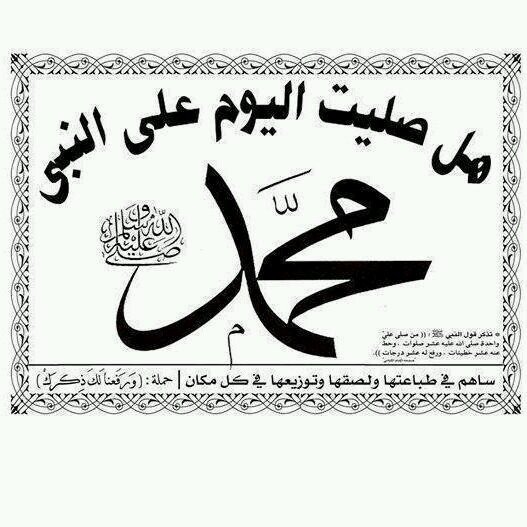 هل صليت اليوم على النبي
محمد
صلى الله عليه وسلم
م
* تذكر قول النبي ﷺ : (( من صلى علي
واحدة صلى الله عليه عشر صلوات ، وحط
عنه عشر خطيئات ، ورفع له عشر درجات )).
ساهم في طباعتها ولصقها وتوزيعها في كل مكان | حملة : ( وَرَفَعْنَا لَكَ ذِكْرَكَ )